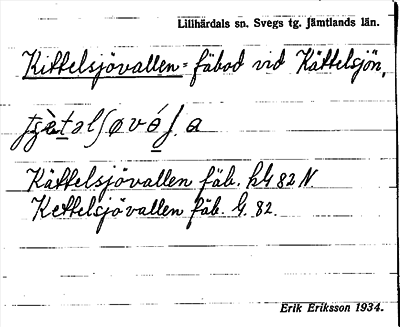 Lillhärdals sn. Svegs tg. Jämtlands län.
Kittelsjövallen = fäbod vid Kättelsjön,
Kättelsjövallen fäb. hG 82 N.
Kettelsjövallen fäb. G. 82.
Erik Eriksson 1934.